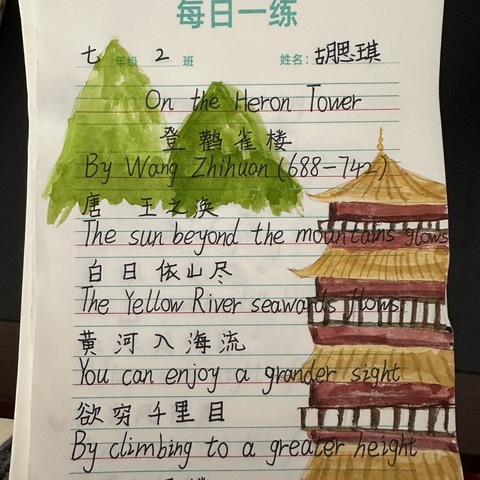 每日一练
七 年级 2 班 姓名: 胡思琪
On the Heron Tower
登鹳雀楼
By Wang Zhihuan (688-742)
唐 王之涣
The sun beyond the mountains glows
白日依山尽
The Yellow River seawards flows
黄河入海流
You can enjoy a grander sight
欲穷千里目
By climbing to a greater height